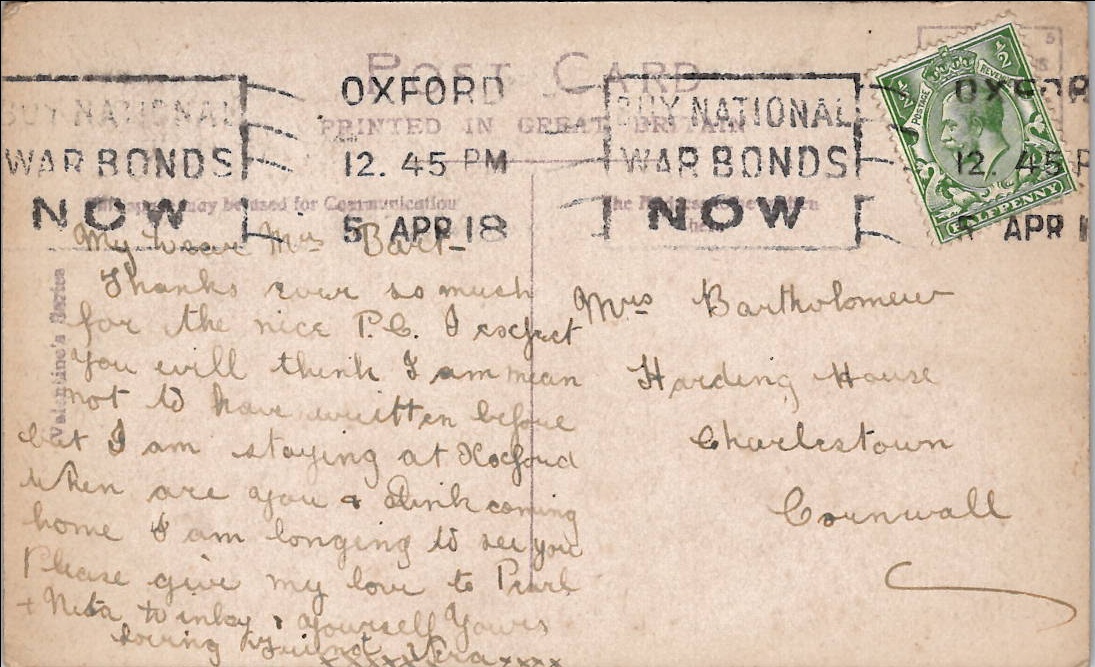 POST CARD
PRINTED IN GREAT BRITAIN
BUY NATIONAL
WAR BONDS
NOW
OXFORD
12.45 PM
5 APR 18
BUY NATIONAL
WAR BONDS
NOW
OXFOR
12.45 P
5 APR 1
POSTAGE
REVENUE
½
½
HALFPENNY
may be used for Communication
Valentine's Series
My Dear Mrs Bart-
Thanks ever so much
for the nice P.C. I expect
you will think I am mean
not to have written before
but I am staying at Oxford
When are you & coming
home I am longing to see you
Please give my love to Pearl
+ Neta & yourself Yours
loving Friend Vera
xxxxx xxxx
Mrs Bartholomew
Harding House
Charlestown
Cornwall